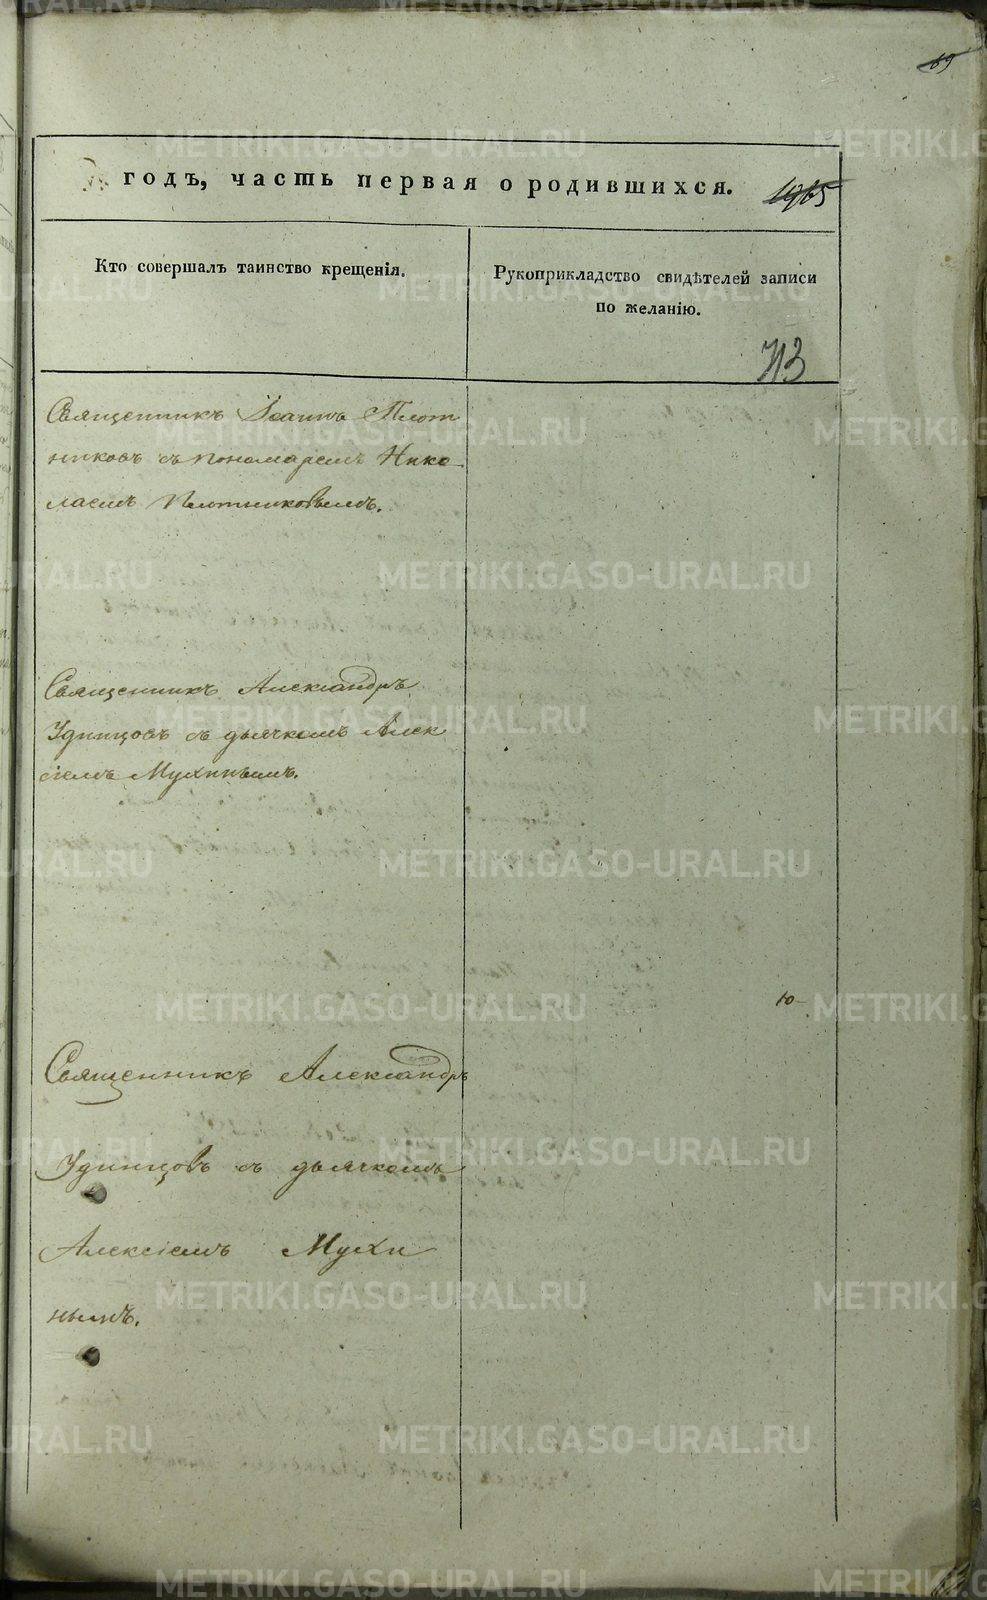 69
годъ, часть первая о родившихся.
1965
Кто совершалъ таинство крещенія.
Рукоприкладство свидѣтелей записи
по желанію.
713
Священникъ Іоаннъ Плот
никовъ съ пономаремъ Нико
лаемъ Плотниковымъ.
Священникъ Александръ
Удинцовъ съ дьячкомъ Алек
сіемъ Мухинымъ.
10
Священникъ Александръ
Удинцовъ съ дьячкомъ
Алексіемъ Мухи
нымъ.
METRIKI.GASO-URAL.RU